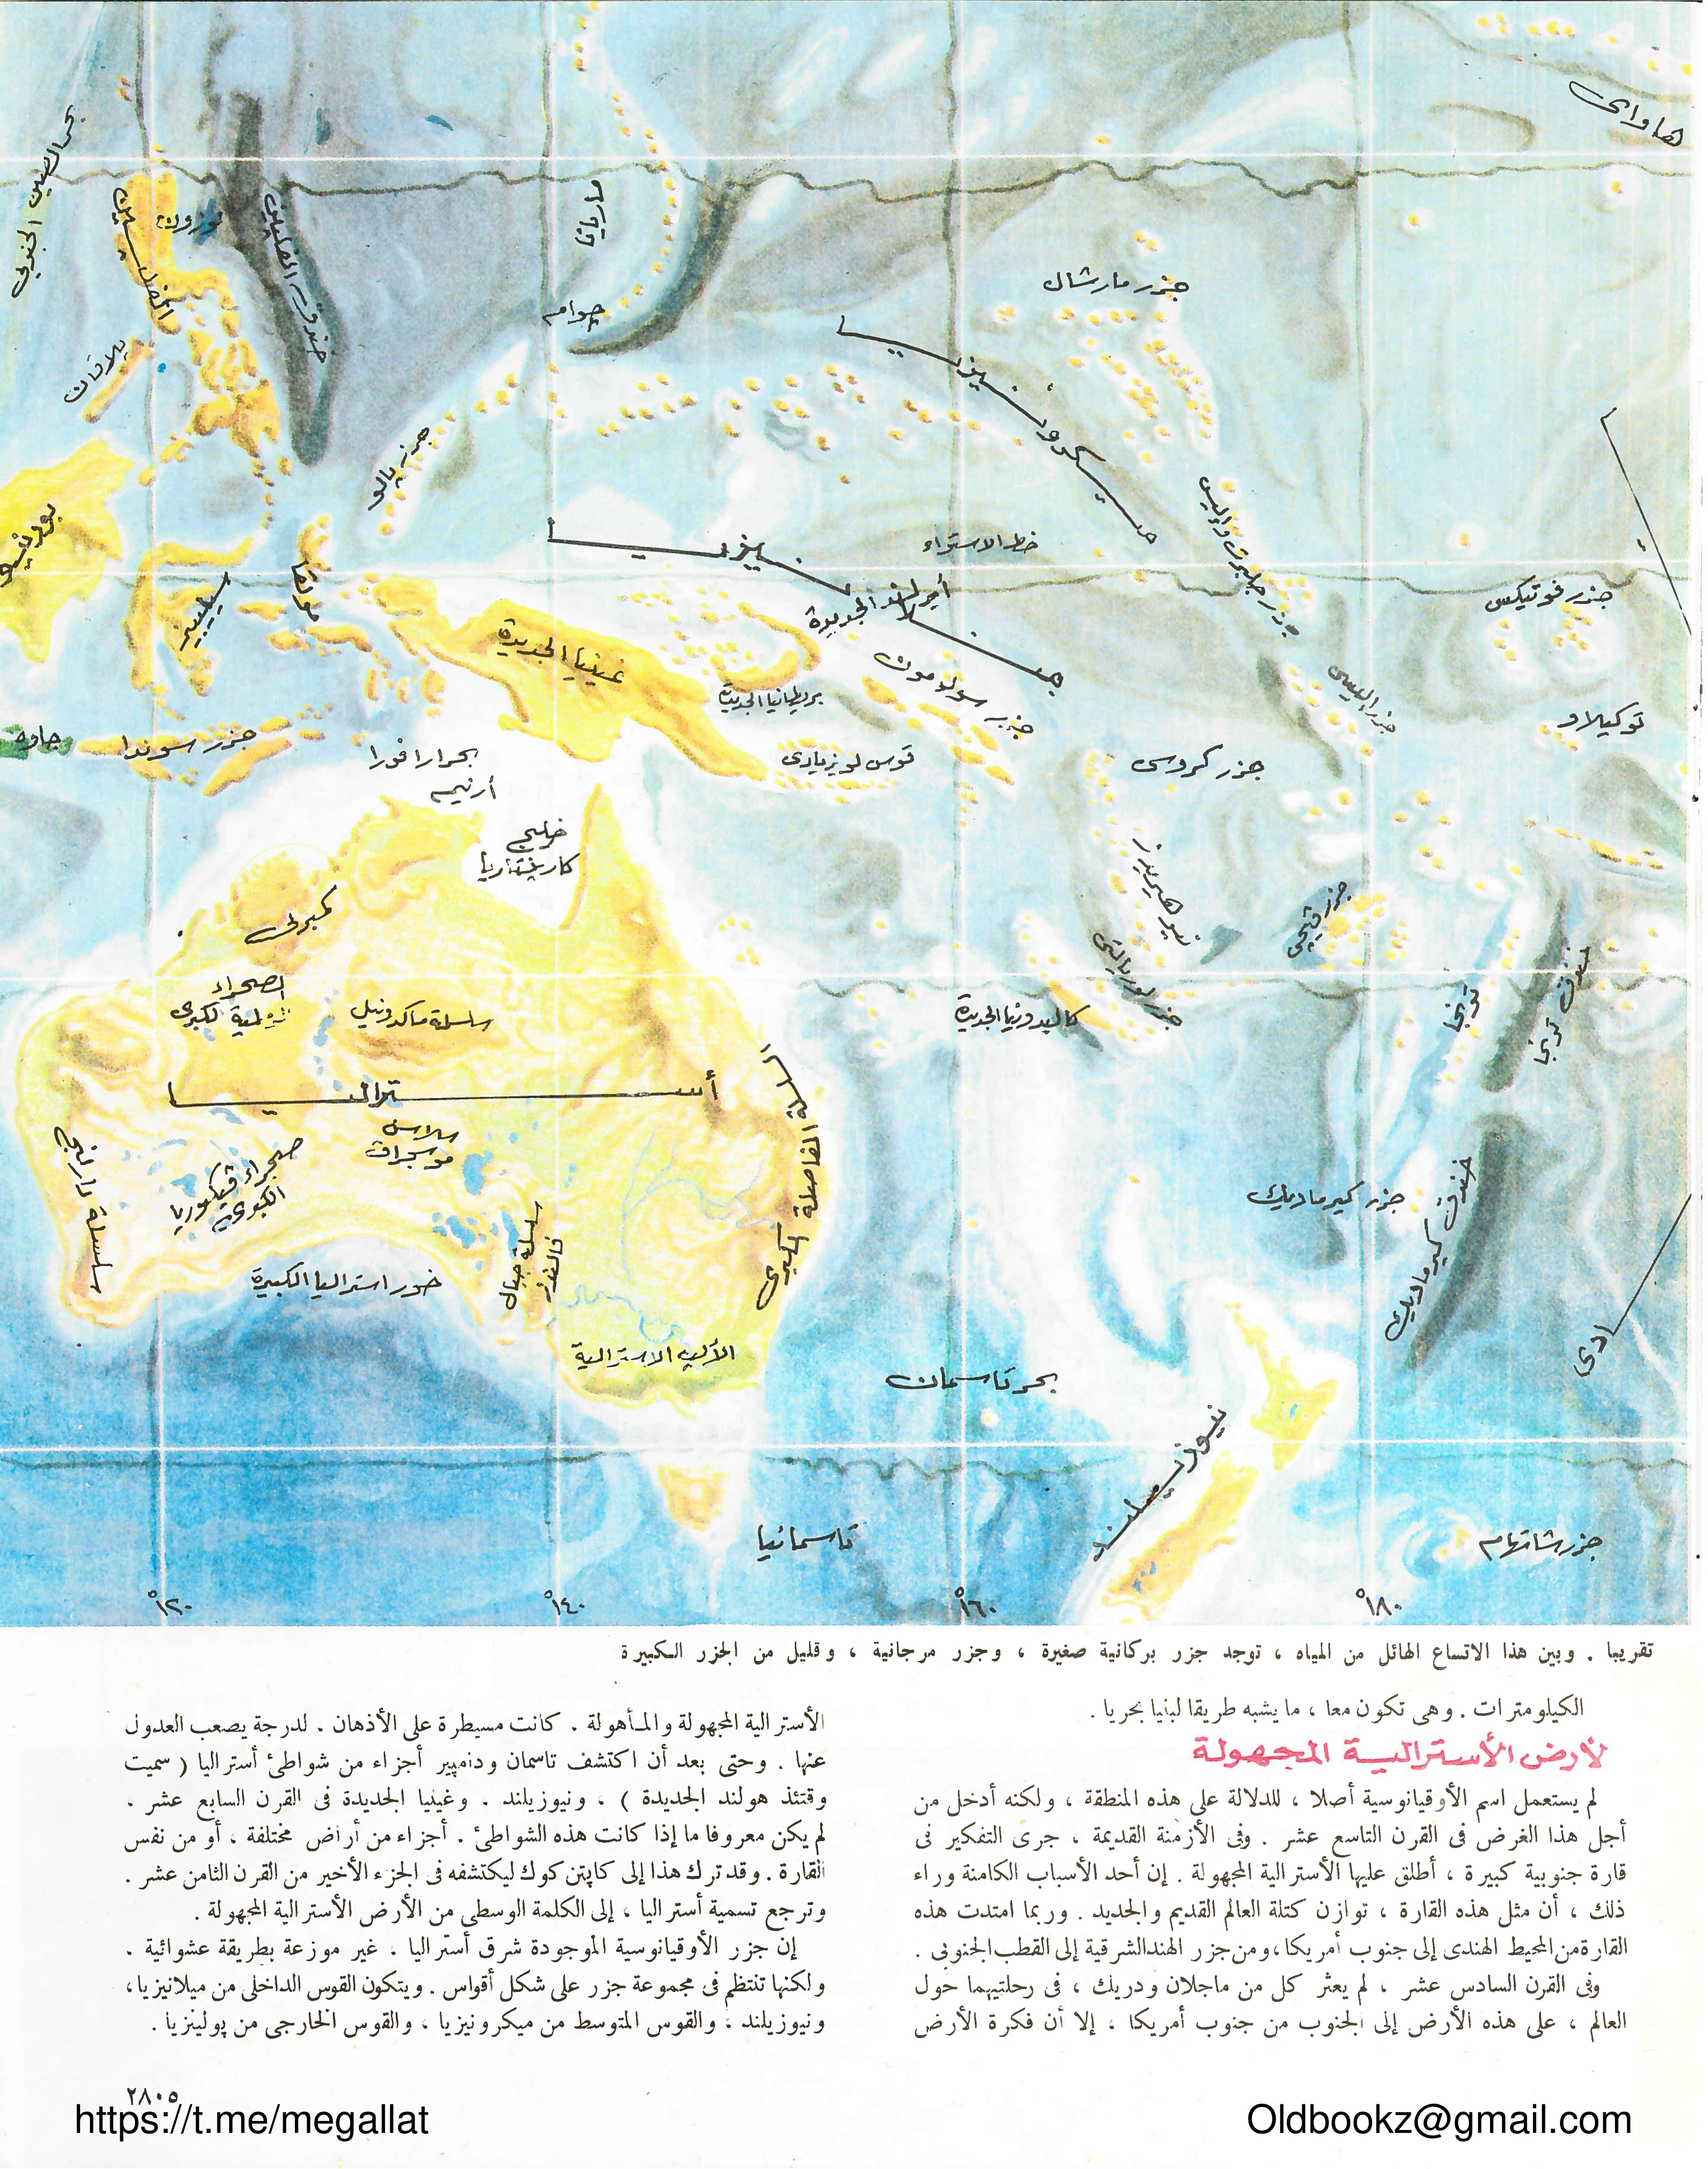 هاواى
بحر الصين الجنوبي
لوزون
الفلبين
خندق الفلبين
ماريانا
جوام
جزر مارشال
پلاوان
ميكرونيزيا
جزر پالو
بورنيو
سيليبيز
مولقا
ميلانيزيا
خط الاستواء
جزر جلبرت وإليس
أيرلند الجديدة
جزر فونيكس
غينيا الجديدة
بريطانيا الجديدة
جزر سولومون
جزر إليس
توكيلاو
جاوه
جزر سوندا
بحر ارافورا
أرنيم
قوس لويزيادى
جزر كروس
خليج
كارپنتاريا
كمبرلى
نيوهبريدز
جزر ڤيچى
جزر لويالتى
الصحراء
الرملية الكبرى
سلسلة ماكدونيل
كاليدونيا الجديدة
تونجا
خندق تونجا
أستراليا
السلسلة الفاصلة الكبرى
سلاسل
موسجراف
صحراء ڤيكتوريا
الكبرى
سلسلة دارلنج
سلسلة جبال
فلندرز
خور استراليا الكبيرة
الألب الاسترالية
جزر كيرماديك
خندق كيرماديك
بحر تاسمان
نيوزيلند
تاسمانيا
جزر شاتهام
١٢٠°
١٤٠°
١٦٠°
١٨٠°
تقريبا . وبين هذا الاتساع الهائل من المياه ، توجد جزر بركانية صغيرة ، وجزر مرجانية ، وقليل من الجزر الكبيرة
الكيلومترات . وهى تكون معا ، ما يشبه طريقا لبنيا بحريا .
لأرض الأسترالية المجهولة
لم يستعمل اسم الأوقيانوسية أصلا ، للدلالة على هذه المنطقة ، ولكنه أدخل من
أجل هذا الغرض فى القرن التاسع عشر . وفى الأزمنة القديمة ، جرى التفكير فى
قارة جنوبية كبيرة ، أطلق عليها الأسترالية المجهولة . إن أحد الأسباب الكامنة وراء
ذلك ، أن مثل هذه القارة ، توازن كتلة العالم القديم والجديد . وربما امتدت هذه
القارة من المحيط الهندى إلى جنوب أمريكا ، ومن جزر الهند الشرقية إلى القطب الجنوبى .
وفى القرن السادس عشر ، لم يعثر كل من ماجلان ودريك ، فى رحلتيهما حول
العالم ، على هذه الأرض إلى الجنوب من جنوب أمريكا ، إلا أن فكرة الأرض
الأسترالية المجهولة والمأهولة . كانت مسيطرة على الأذهان . لدرجة يصعب العدول
عنها . وحتى بعد أن اكتشف تاسمان ودامپير أجزاء من شواطئ أستراليا ( سميت
وقتئذ هولند الجديدة ) ، ونيوزيلند . وغينيا الجديدة فى القرن السابع عشر .
لم يكن معروفا ما إذا كانت هذه الشواطئ . أجزاء من أراض مختلفة ، أو من نفس
القارة . وقد ترك هذا إلى كاپتن كوك ليكتشفه فى الجزء الأخير من القرن الثامن عشر .
وترجع تسمية أستراليا ، إلى الكلمة الوسطى من الأرض الأسترالية المجهولة .
إن جزر الأوقيانوسية الموجودة شرق أستراليا ، غير موزعة بطريقة عشوائية .
ولكنها تنتظم فى مجموعة جزر على شكل أقواس . ويتكون القوس الداخلى من ميلانيزيا ،
ونيوزيلند ، والقوس المتوسط من ميكرونيزيا ، والقوس الخارجى من پولينزيا .
٢٨٠٥
https://t.me/megallat
Oldbookz@gmail.com